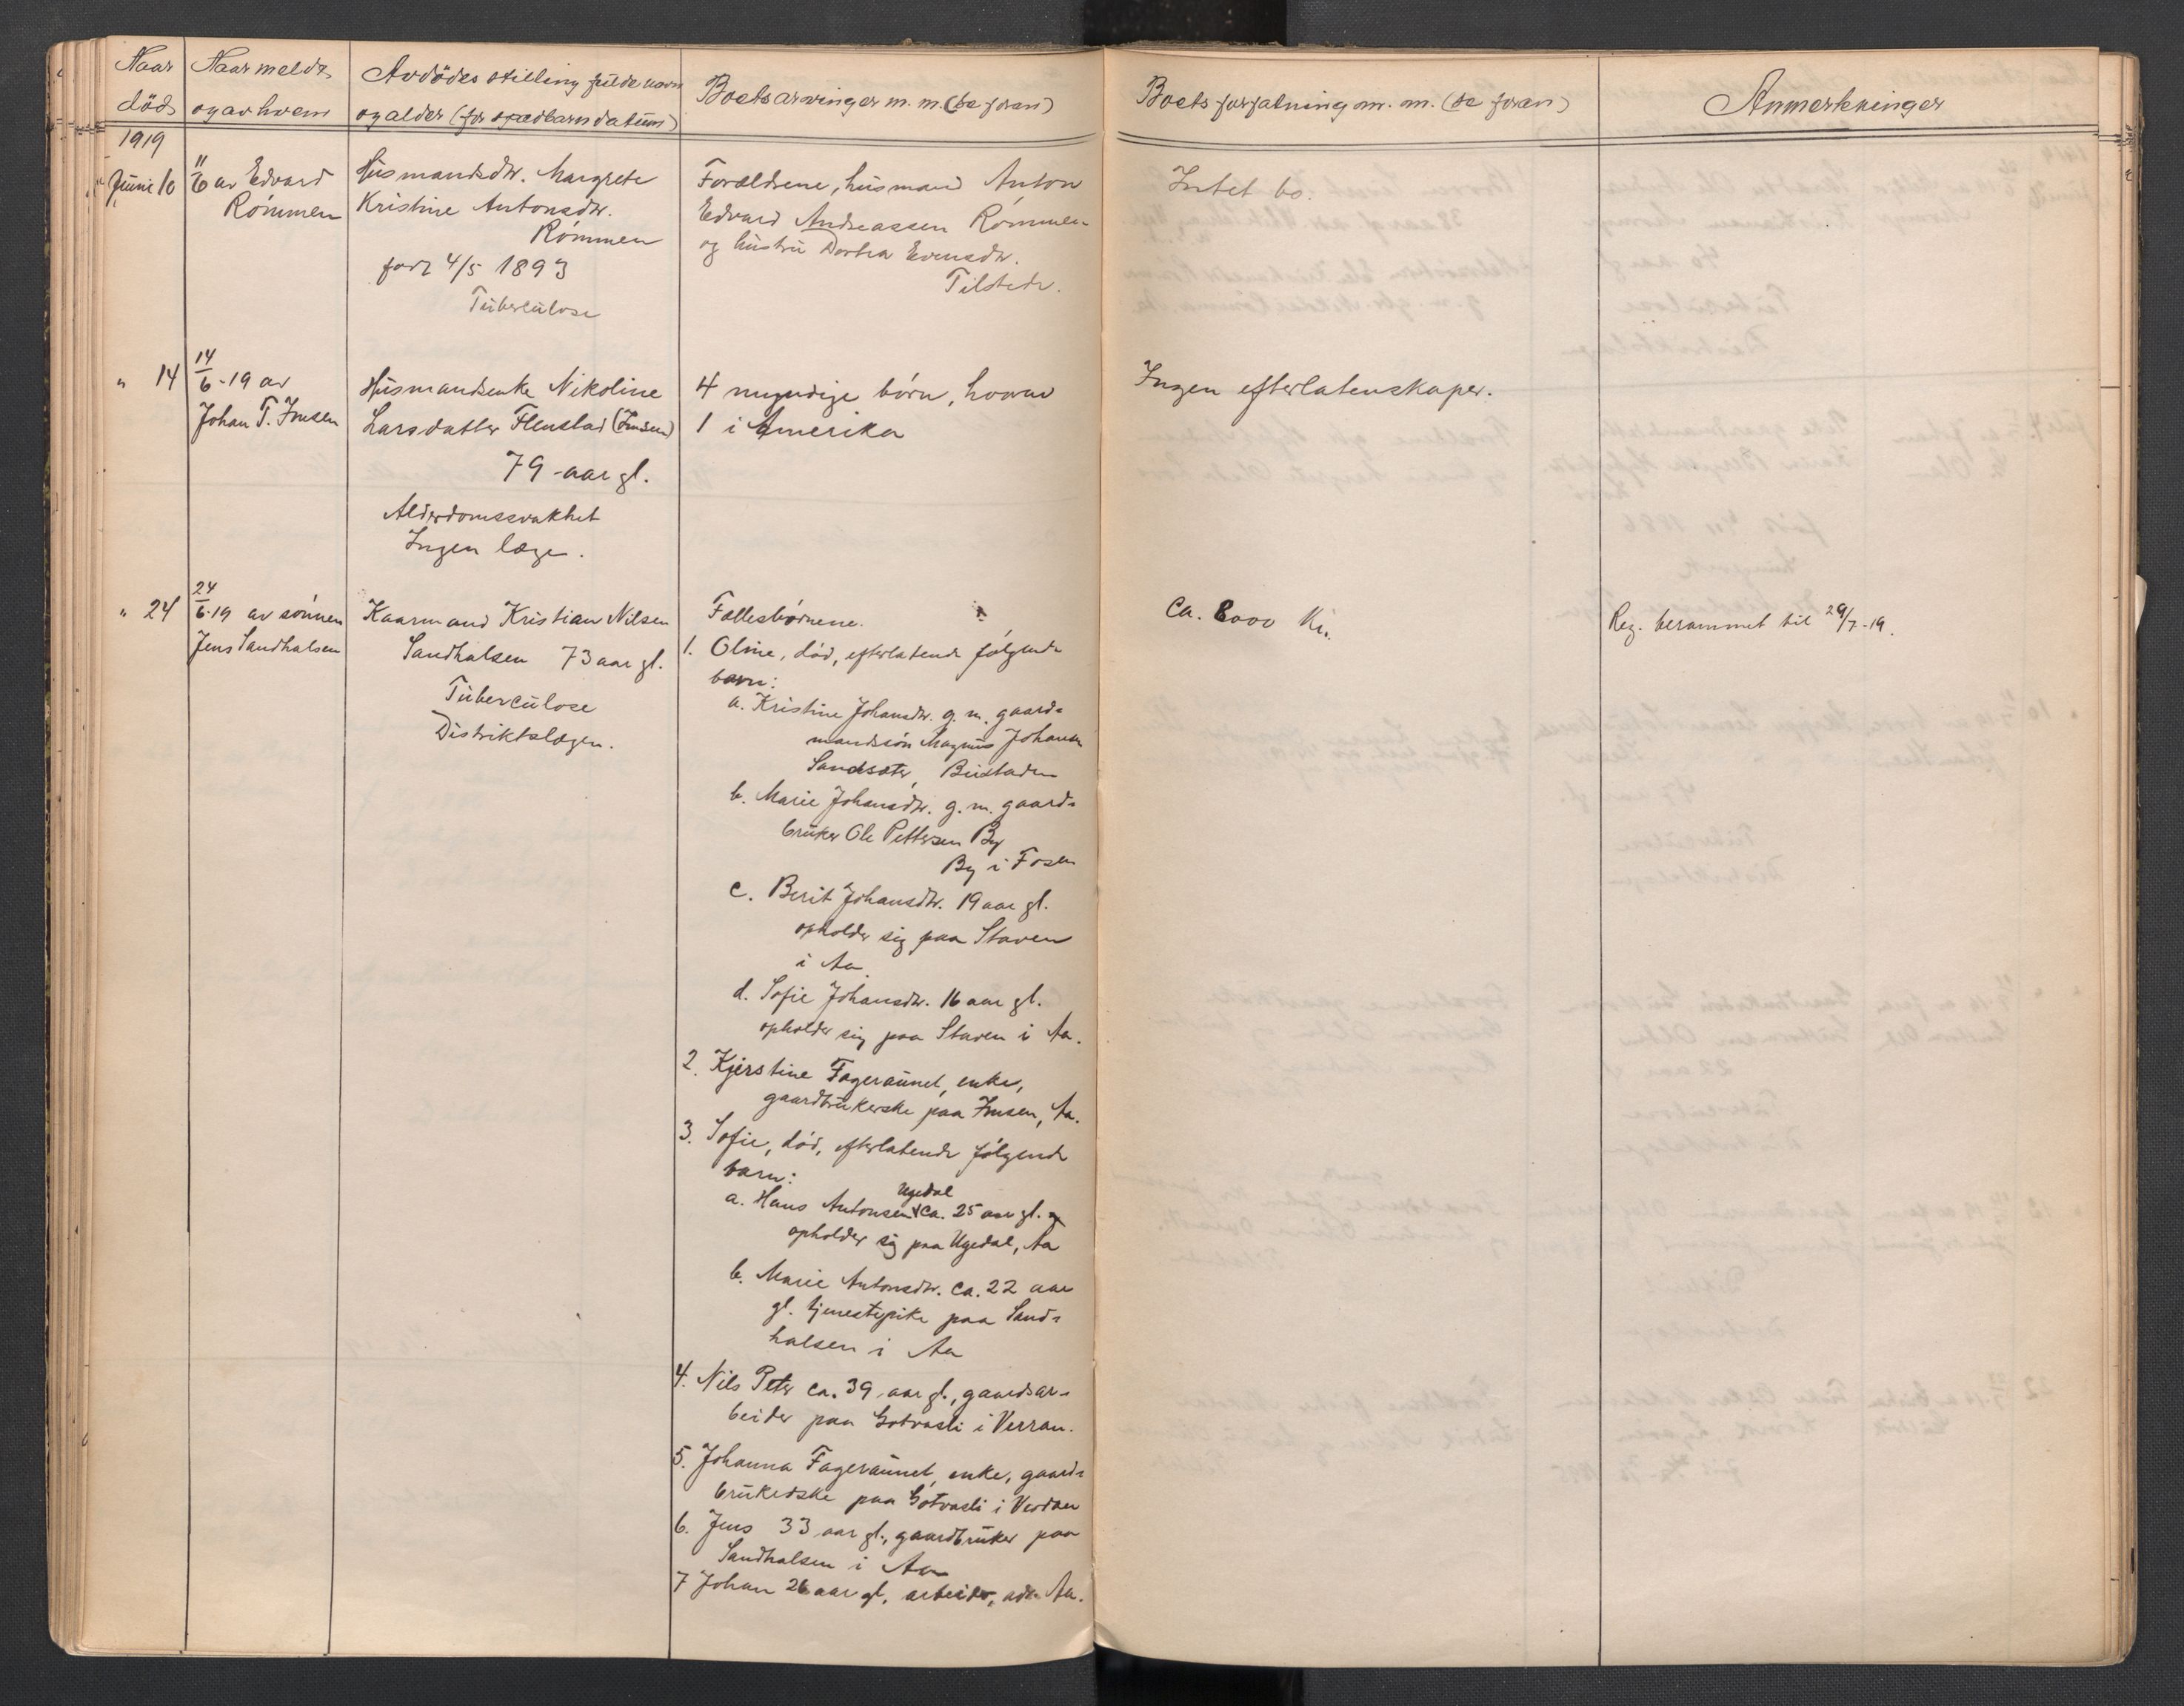 Naar
död
Naar meldt
og av hvem
Avdödes stilling fulde navn
og alder (for spædbarn datum)
Boets arvinger m. m. (se foran)
Boets forfatning m. m. (se foran)
Anmerkninger
1919
Juni 10
11/6 av Edvard
Römmen
Husmandsdtr. Margrete
Kristine Antonsdtr.
Römmen
født 4/5 1893
Tuberculose
Forældrene, husmand Anton
Edvard Andreassen Römmen
og hustru Dortea Evensdtr.
Tilstede.
Intet bo.
" 14
14/6-19 av
Johan T. Imsen
Husmandsenke Nikoline
Larsdatter Flenstad (Imsen)
79 aar gl.
Alderdomssvakhet
Ingen læge.
4 myndige börn, hvorav
1 i Amerika
Ingen efterlatenskaper.
" 24
24/6-19 av sönnen
Jens Sandhalsen
Kaarmand Kristian Nilsen
Sandhalsen 73 aar gl.
Tuberculose
Distriktslægen.
Fællesbörnene.
1. Oline, död, efterlatende fölgende
barn:
a. Kristine Johansdtr. g. m. gaard=
mandssön Magnus Johansen
Sandsæter, Beistaden
b. Marie Johansdtr. g. m. gaard=
bruker Ole Pettersen By
By i Fosen
c. Berit Johansdtr. 19 aar gl.
opholder sig paa Staven
i Aa
d. Sofie Johansdtr. 16 aar gl.
opholder sig paa Staven i Aa.
2. Kjerstine Fageraunet, enke,
gaardbrukerske paa Imsen, Aa.
3. Sofie, död, efterlatende fölgende
barn:
a. Hans Antonsen Ugedal ca. 25 aar gl.
opholder sig paa Ugedal, Aa
b. Marie Antonsdtr. ca. 22 aar
gl. tjenestepike paa Sand=
halsen i Aa
4. Nils Peter ca. 39 aar gl., gaardsar=
beider paa Gotvasli i Verran.
5. Johanna Fageraunet, enke, gaard=
brukerske paa Gotvasli i Verran
6. Jens 33 aar gl., gaardbruker paa
Sandhalsen i Aa
7 Johan 26 aar gl. arbeider, adr. Aa.
Ca. 8000 Kr.
Reg. berammet til 29/7-19.